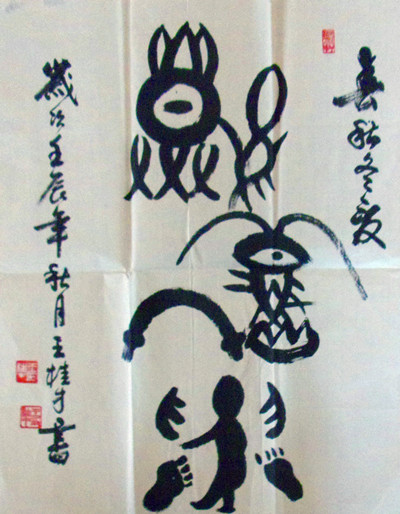 春秋冬夏
歲次壬辰年秋月王桂才書